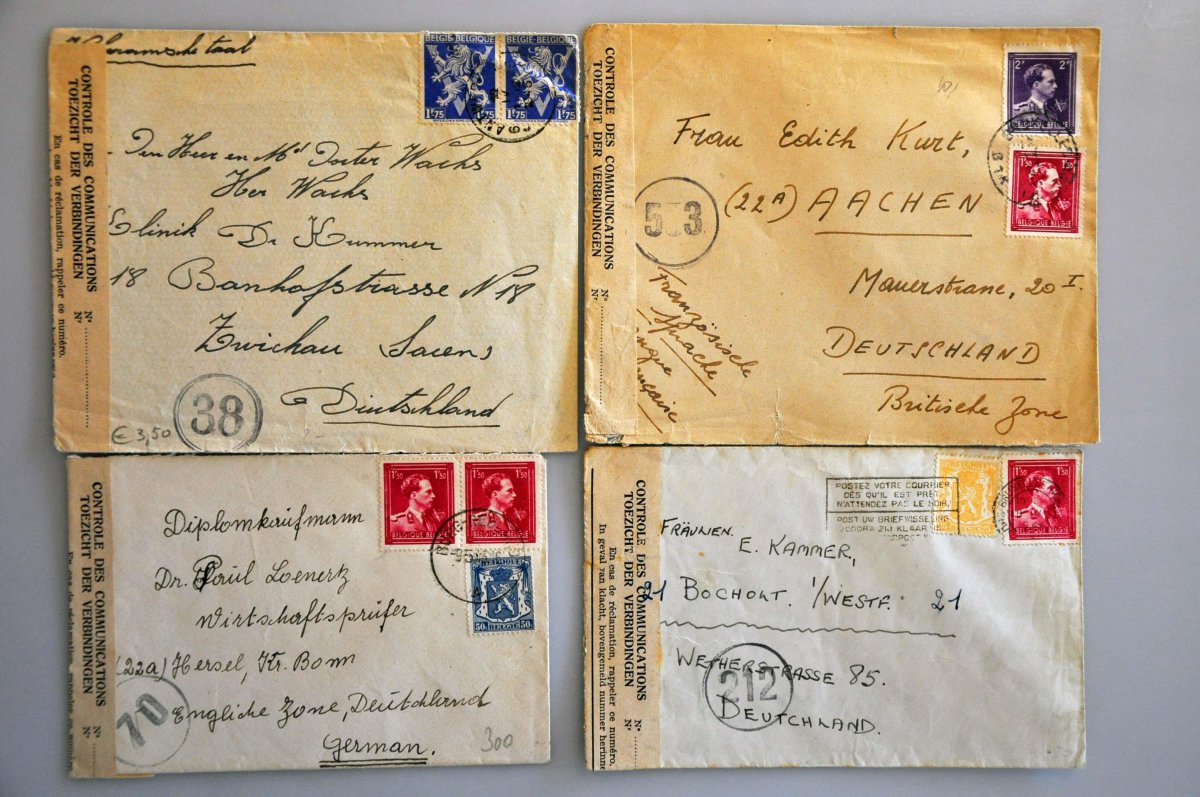 Vlaamsche taal
CONTROLE DES COMMUNICATIONS N°
TOEZICHT DER VERBINDINGEN N°
En cas de réclamation, rappeler ce numéro.
BELGIE-BELGIQUE BELGIE-BELGIQUE
1F75 1F75 1F75 1F75
Den Heer en Md Doctor Wachs
Her Wachs
Clinik Dr Kummer
18 Banhofstrasse N 18
Zwichau Sacens
Diutschland
38
€ 3,50
CONTROLE DES COMMUNICATIONS N°
TOEZICHT DER VERBINDINGEN N°
2F 2F
BELGIQUE BELGIE
1F50
BELGIQUE BELGIE
Frau Edith Kurt,
(22A) AACHEN
Mauerstrane, 20 I.
DEUTSCHLAND
Britische Zone
533
Französische
Sprache
langue
française
CONTROLE DES COMMUNICATIONS N°
TOEZICHT DER VERBINDINGEN N°
En cas de réclamation, rappeler ce numéro
1F50 1F50
BELGIQUE BELGIE
50c 50c
Diplomkaufmann
Dr. Paul Loenertz
Wirtschaftsprüfer
(22a) Hersel, Kr. Bonn
Engliche Zone, Deutchland
German.
70
300
CONTROLE DES COMMUNICATIONS N°
TOEZICHT DER VERBINDINGEN N°
En cas de réclamation, rappeler ce numéro.
In geval van klacht, bovengemeld nummer herinne
POSTEZ VOTRE COURRIER
DÈS QU'IL EST PRÊT
N'ATTENDEZ PAS LE SOIR.
POST UW BRIEFWISSELING
ZODRA ZIJ KLAAR
1F50
BELGIQUE BELGIE
FRÄUNEN.
E. KAMMER,
21 BOCHOLT. I/WESTF. 21
WETHERSTRASSE 85.
DEUTCHLAND.
212